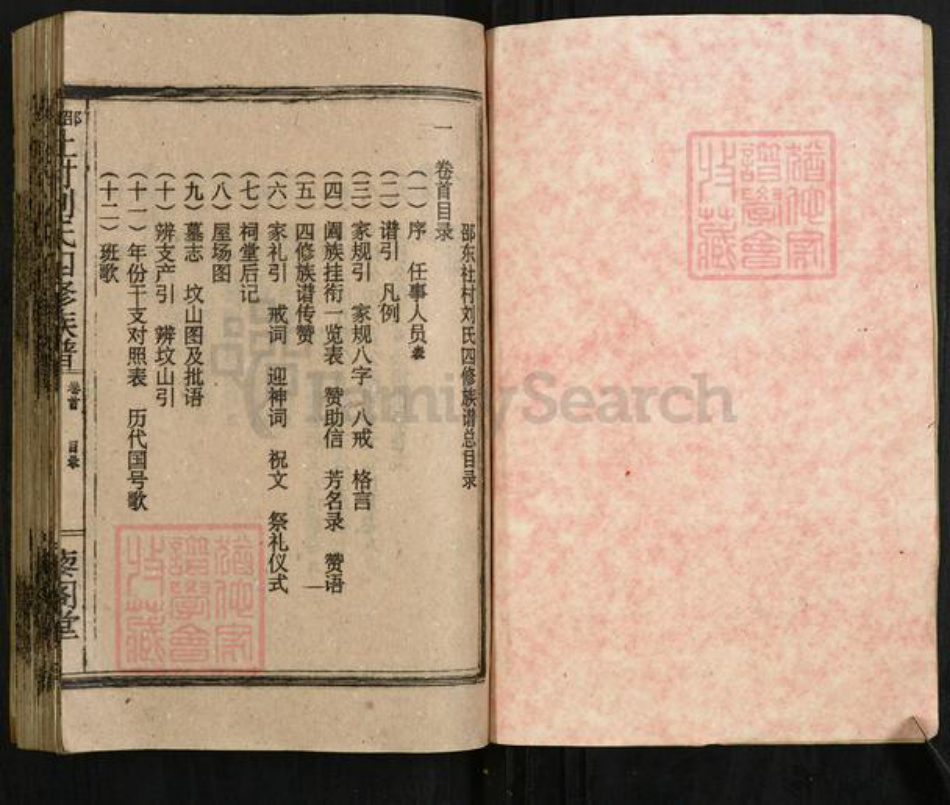 邵东社村刘氏四修族谱总目录
一 卷首目录
（一）序 任事人员表
（二）谱引 凡例
（三）家规引 家规八字 八戒 格言
（四）阖族挂衔一览表 赞助信 芳名录 赞语
（五）四修族谱传赞
（六）家礼引 戒词 迎神词 祝文 祭礼仪式
（七）祠堂后记
（八）屋场图
（九）墓志 坟山图及批语
（十）辨支产引 辨坟山引
（十一）年份干支对照表 历代国号歌
（十二）班歌
刘氏四修族谱 卷首 目录 藜阁堂
FamilySearch